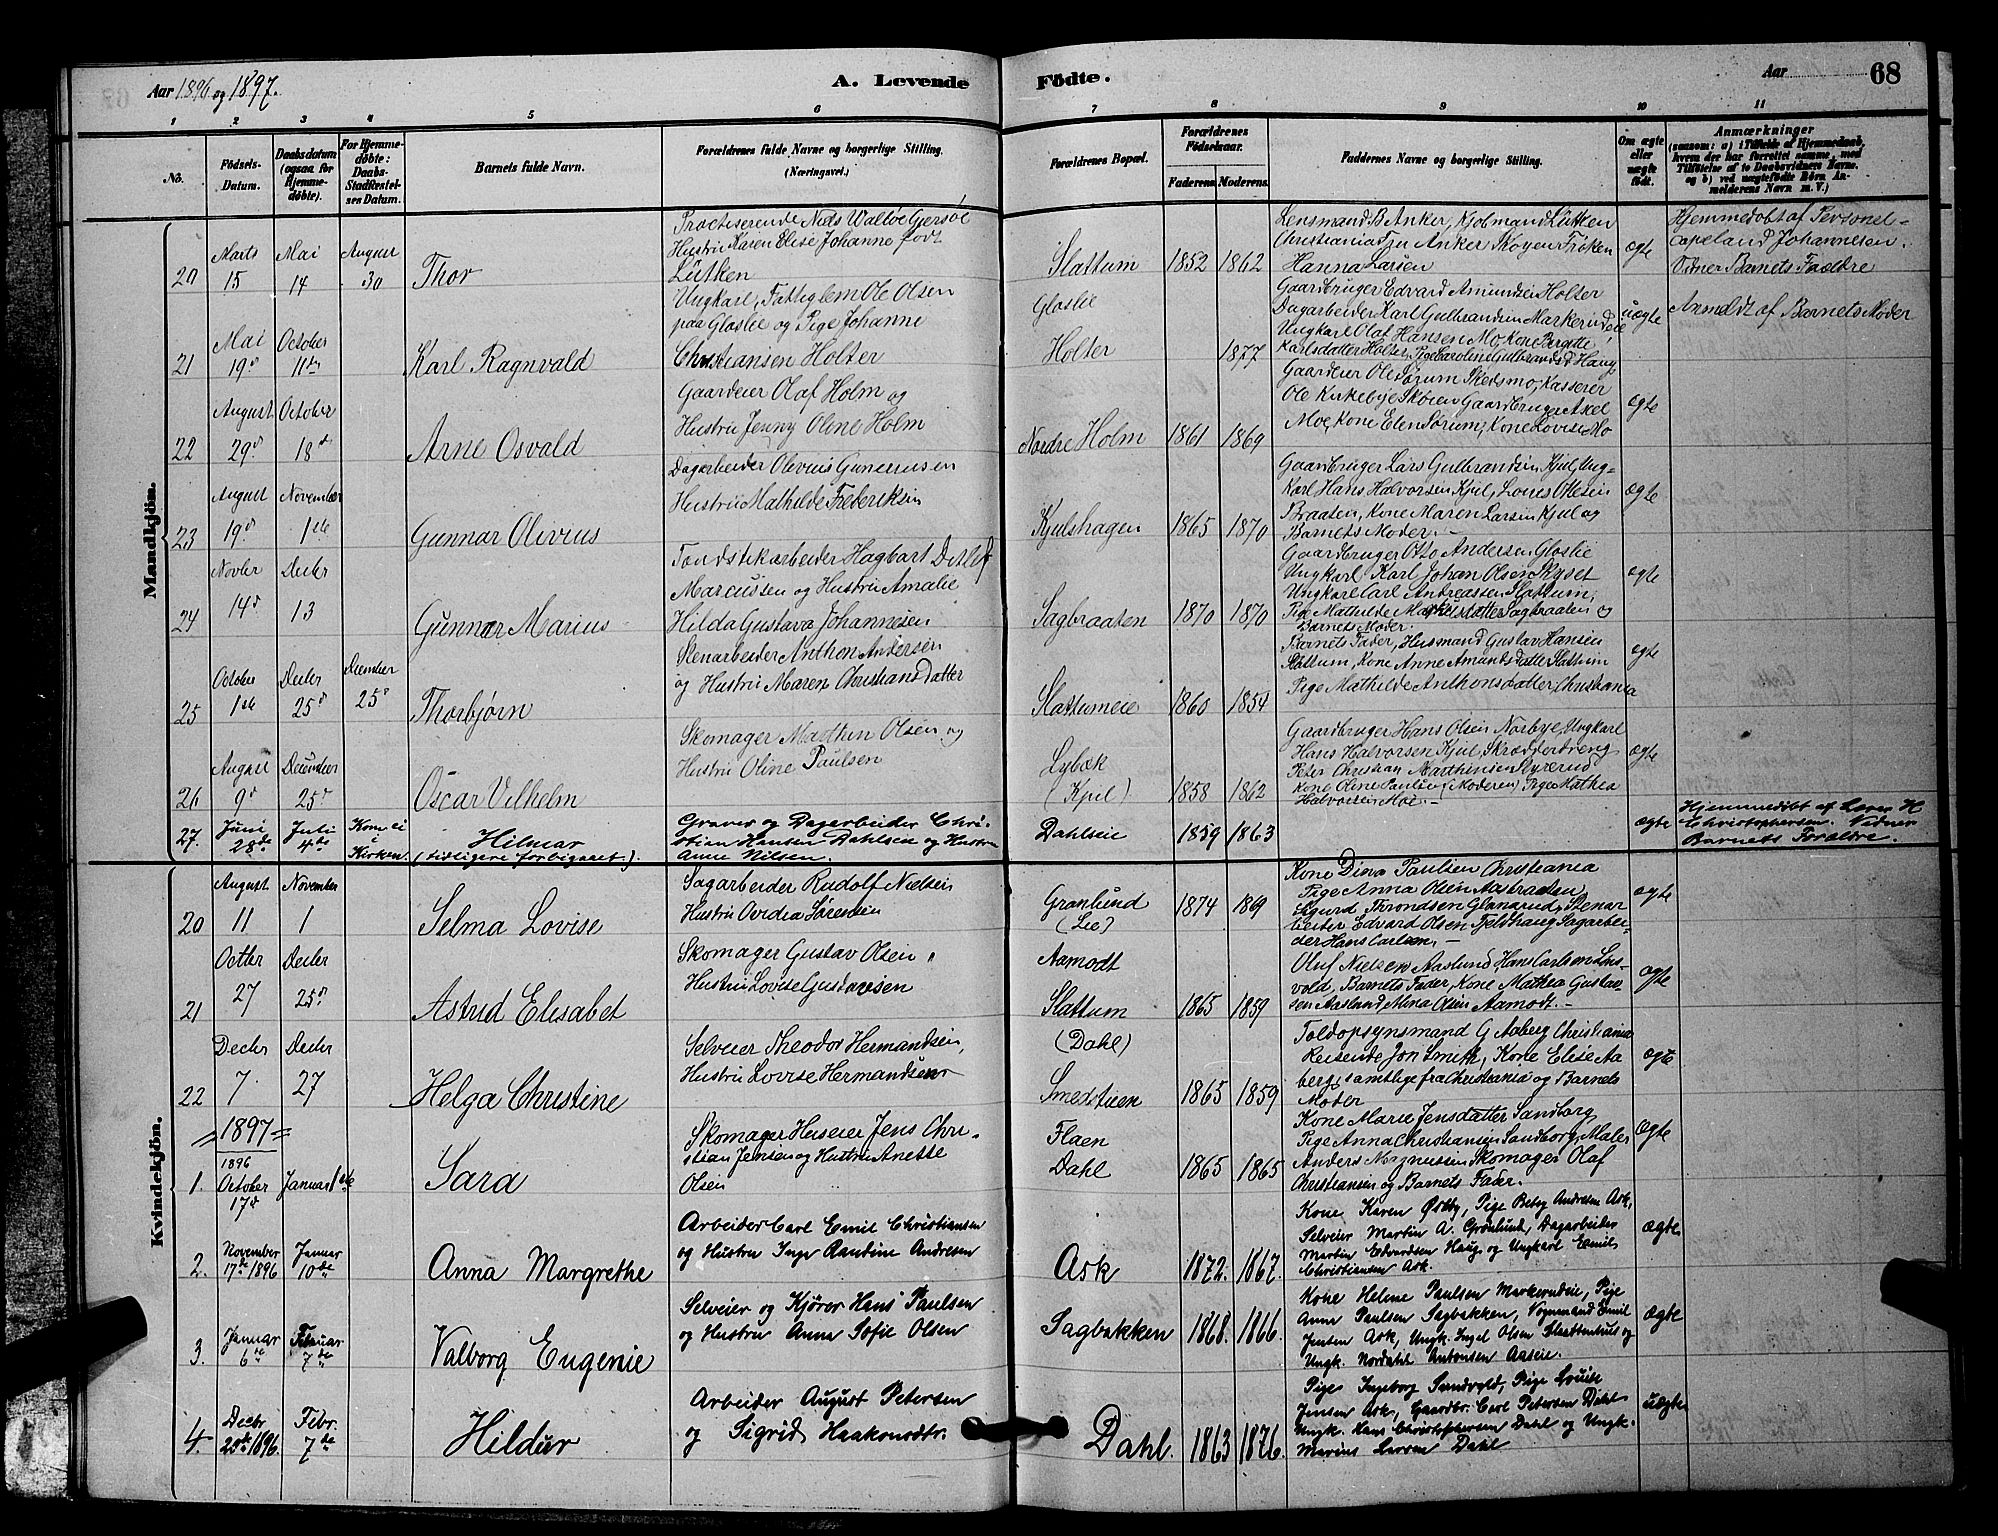 Aar 1896 og 1897.
A. Levende Födte.
Aar 68
1 2 3 4 5 6 7 8 9 10 11
No.
Födsels-
Datum.
Daabsdatum
(ogsaa for
Hjemme-
döbte).
For Hjemme-
döbte:
Daabs-
Stadfæstel-
ses Datum.
Barnets fulde Navn.
Forældrenes fulde Navne og borgerlige Stilling.
(Næringsvei.)
Forældrenes Bopæl.
Forældrenes
Födselsaar.
Faderens. Moderens.
Faddernes Navne og borgerlige Stilling.
Om ægte
eller
uægte
födt.
Anmærkninger
(saasom: a) i Tilfælde af Hjemmedaab,
hvem der har forrettet samme, med
Tilföielse af to Daabsvidners Navne.
og b) ved uægtefödte Börn An-
melderens Navn m. V.)
Mandkjön.
20 Marts 15 Mai 14 August 30
Thor
Hustru Karen Elise Johanne født
Lütken
Slattum 1852 1862
Hanna Larsen
ægte
Hjemmedøbt af
Johannesen.
Vidner Barnets Forældre
21 Mai 19d October 11te
Karl Ragnvald
Ungkarl, Fattiglem Ole Olsen
paa Gloslie og Pige Johanne
Christiansen Holter
Gloslie
Holter 1877
Gaardbruger Edvard Amundsen Holter
Dagarbeider Karl Gulbrandsen Markerudeie
Ungkarl Olaf Hansen Mo, Kone Birgitte
Karlsdatter Holter, Pige Caroline Gulbrandsd Haug
uægte
Anmeldt af Barnets Moder
22 August 29d October 18de
Arne Osvald
Gaardeier Olaf Holm og
Hustru Jenny Oline Holm
Nordre Holm 1861 1869
Gaardeier Ole Sørum Skedsmo, Kasserer
Ole Kirkebye Skøien Gaardbruger Axel
Moe, Kone Elen Sørum, Kone Lovise Mo
ægte
23 August 19d November 1ste
Gunnar Olivius
Dagarbeider Olevius Gunerius en
Hustru Mathilde Frederiksen
Kjulshagen 1865 1870
Gaardbruger Lars Gulbrandsen Kjul, Ung-
karl Hans Halvorsen Kjul, Louis Ottesen
Braaten, Kone Maren Larsen Kjul og
Barnets Moder.
ægte
24 Novbr 14d Decbr 13
Gunnar Marius
Tøndstikarbeider Hagbart Detlef
Marcussen og Hustru Amalie
Hilda Gustava Johannesen
Sagbraaten 1870 1870
Gaardbruger Otto Andersen Gloslie
Ungkarl Karl Johan Olsen Ryset
Ungkarl Carl Andreassen Slattum,
Pige Mathilde Markusdatter Sagbraaten og
Barnets Moder.
ægte
25 October 1ste Decbr 25d December 25d
Thorbjørn
Stenarbeider Anthon Andersen
og Hustru Maren Christiansdatter
Slattumeie 1860 1854
Barnets Fader, Husmand Gustav Hansen
Slattum, Kone Anne Amundsdatter Slattum
Pige Mathilde Anthonsdatter Christiania
ægte
26 August 9d December 25d
Oscar Vilhelm
Skomager Mathin Olsen og
Hustru Oline Paulsen
Lybæk
(Kjul) 1858 1862
Gaardbruger Hans Olsen Norbye, Ungkarl
Hans Halvorsen Kjul, Skrædderdreng
Peter Christian Marthinsen Syverud
Kone Oline Paulsen (Moderen) Pige Mathea
Halvorsen Moe.
ægte
27. Juni 28de Juli 4de Kom ei i Kirken
Hilmar
(tidligere forbigaaet).
Graver og Dagarbeider Chri-
stian Hansen Dahlseie og Hustru
Anne Nilsen.
Dahlseie 1859 1863
ægte
Hjemmedøbt af Lars H.
Christophersen. Vidner
Barnets Forældre.
Kvindekjön.
20 August 11 November 1
Selma Lovise
Sagarbeider Rudolf Nielsen
Hustru Ovidia Sørensen
Granlund
(Lie) 1874 1869
Kone Dina Paulsen Christiania
Pige Anna Olsen Aasbraaten
Sigurd Throndsen Glanerud, Stenar
beiter Edvard Olsen Fjeldhaug Sagarbei-
der Hans Carlsen.
ægte
21 Octbr 27 Decbr 25d
Astrid Elisabet
Skomager Gustav Olsen
Hustru Lovise Gustavsen
Aamodt
Slattum 1865 1859
Oluf Nielsen Aaslund, Hans Carlsen Lös-
vold, Barnets Fader, Kone Mathea Gustav-
sen Aaslund, Mina Olsen Aamodt.
ægte
22 Decbr 7. Decbr 27
Helga Christine
Selveier Theodor Hermandsen,
Hustru Lovise Hermandsen
(Dahl)
Smedstuen 1865 1859
Toldopsynsmand G Aaberg Christiania
Reisende Jon Smith, Kone Elise Aa
berg, samtlige fra Christiania og Barnets
Moder
ægte
1897
1. 1896 October 17d Januar 1ste
Sara
Skomager Huseier Jens Chri-
stian Jensen og Hustru Anette
Olsen
Flaen
Dahl 1865 1865
Kone Marie Jensdatter Sandborg
Pige Anna Christiansen Sandborg, Maler
Anders Magnussen Skomager Olaf
Christiansen og Barnets Fader.
ægte
2. November 17de 1896 Januar 10de
Anna Margrethe
Arbeider Carl Emil Christiansen
og Hustru Inga Randine Andresen
Ask 1872. 1867.
Kone Karen Østby, Pige Betsy Andresen Ask,
Selveier Martin A. Grønlund, Dagarbeider
Martin Edvardsen Haug og Ungkarl Emil
Christiansen Ask.
ægte
3. Januar 6te Februar 7de
Valborg Eugenie
Selveier og Kjører Hans Paulsen
og Hustru Anna Sofie Olsen
Sagbakken 1868. 1866.
Kone Helene Paulsen Markerudeie, Pige
Anna Paulsen Sagbakken, Vognmand Emil
Jensen Ask, Ungk. Ingel Olsen Slattenhus og
Ungk. Nordahl Antonsen Aaseie.
ægte
4. Decbr 20de 1896. Febr. 7de
Hildur
Arbeider August Petersen
og Sigrid Haakonsdtr.
Dahl. 1863 1876.
Pige Ingeborg Sundvold, Pige Louise
Jensen Ask, Gaardbr. Carl Petersen Dahl
Ungk. Hans Christophersen Dahl og Ungk.
Marius Larsen Dahl
uægte